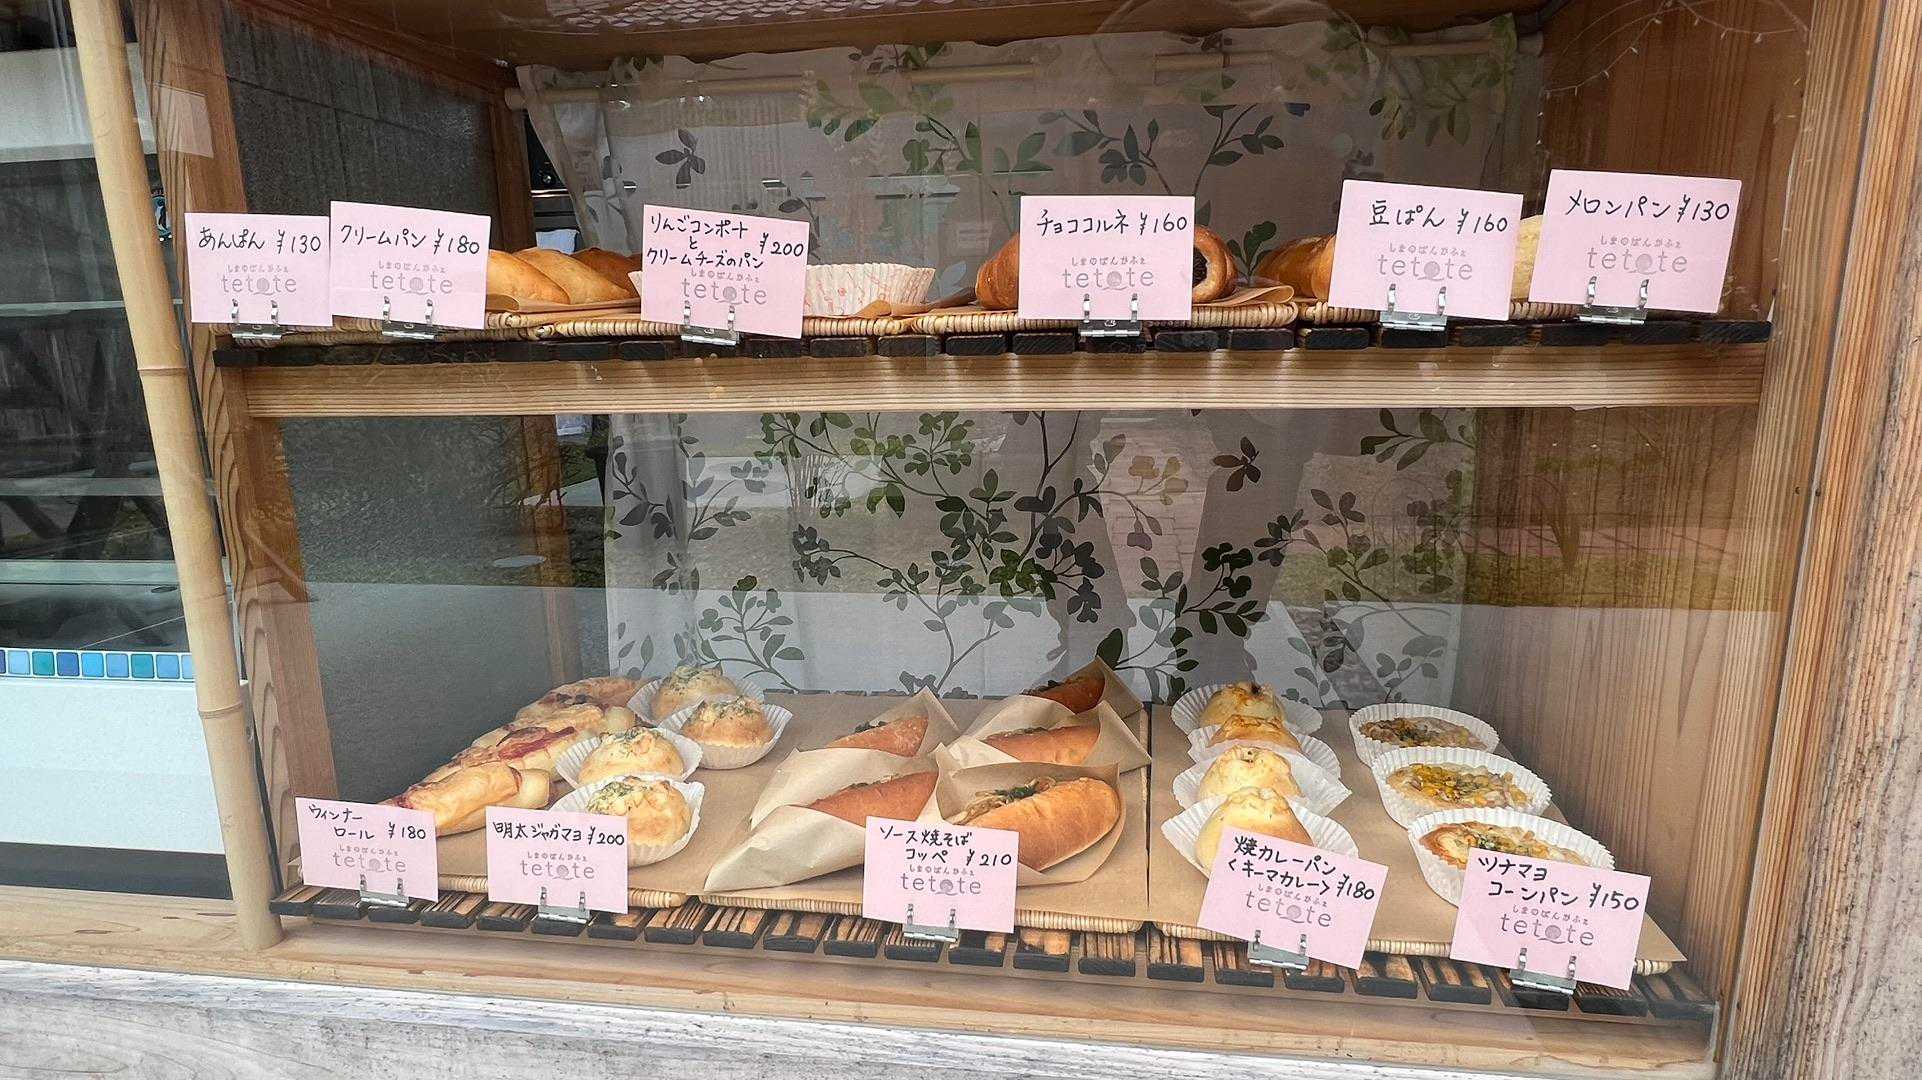 あんぱん ¥130
しまのぱんかふぇ
tetote
クリームパン ¥180
しまのぱんかふぇ
tetote
りんごコンポート
と ¥200
クリームチーズのパン
しまのぱんかふぇ
tetote
チョココルネ ¥160
しまのぱんかふぇ
tetote
豆ぱん ¥160
しまのぱんかふぇ
tetote
メロンパン ¥130
しまのぱんかふぇ
tetote
ウィンナー
ロール ¥180
しまのぱんかふぇ
tetote
明太ジャガマヨ ¥200
しまのぱんかふぇ
tetote
ソース焼そば
コッペ ¥210
しまのぱんかふぇ
tetote
焼カレーパン
<キーマカレー> ¥180
しまのぱんかふぇ
tetote
ツナマヨ
コーンパン ¥150
しまのぱんかふぇ
tetote